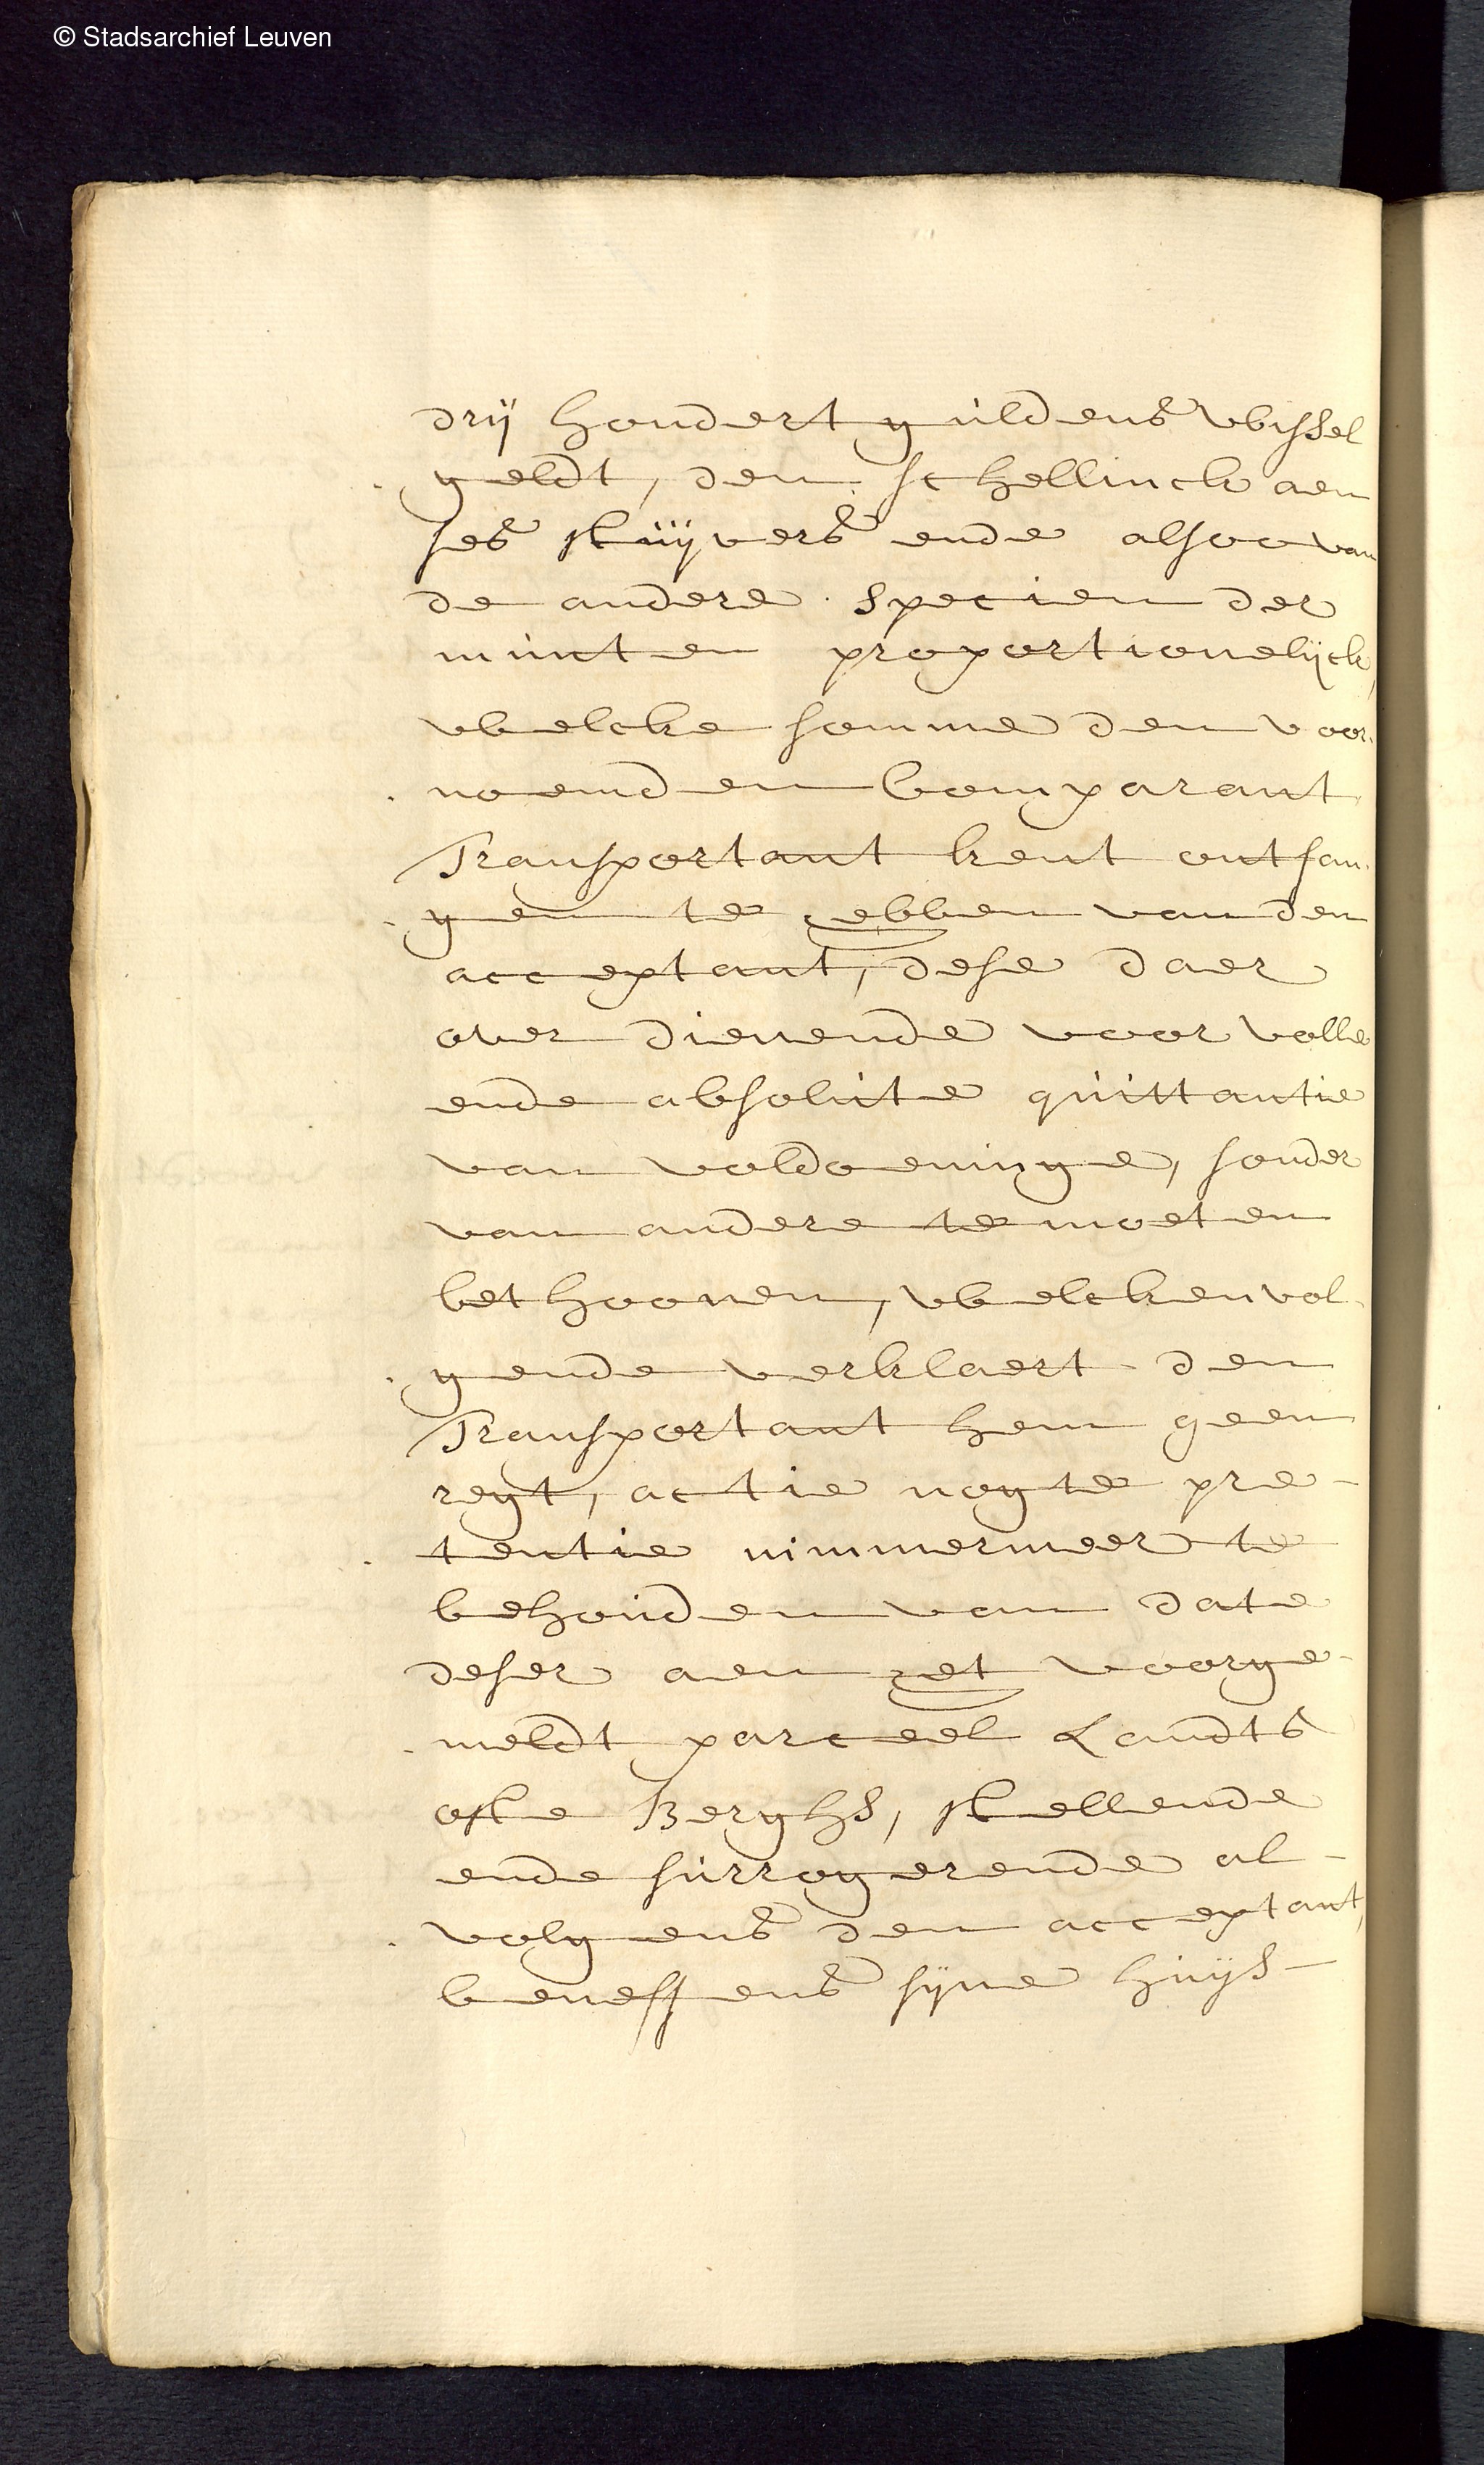 © Stadsarchief Leuven
drij hondert guldens wissel
geldt, den schellinck aen
ses stuijvers ende alsoo van
de andere specien der
munten proportionelijck,
welcke somme den voor
noemden Comparant
Transportant kent ontfan
gen te hebben van den
acceptant, dese daer
over dienende voor volle
ende absolute quittantie
van voldoeninge, sonder
van andere te moeten
bethoonen, welcken vol
gende verklaert den
Transportant hem geen
regt, actie nogte pre-
tentie nimmermeer te
behouden van date
deser aen het voorge-
meldt parceel Landts
ofte Berghs, stellende
ende surrogerende al-
volgens den acceptant,
beneffens sijne huijs-